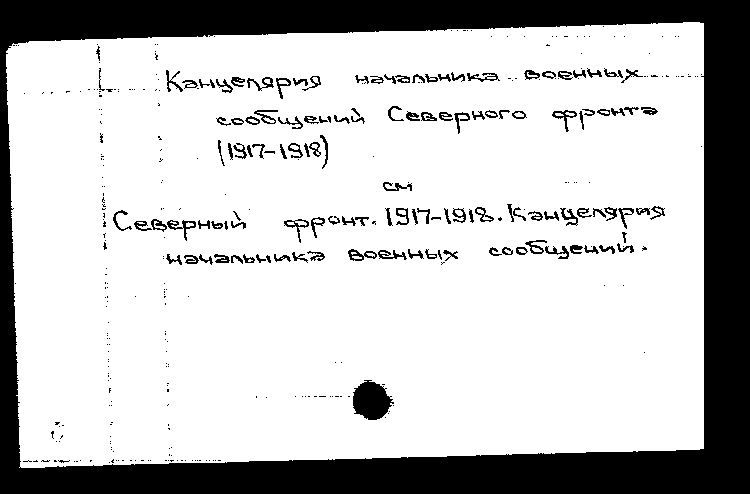 Канцелярия начальника военных
сообщений Северного фронта
(1917-1918)
см
Северный фронт. 1917-1918. Канцелярия
начальника военных сообщений.